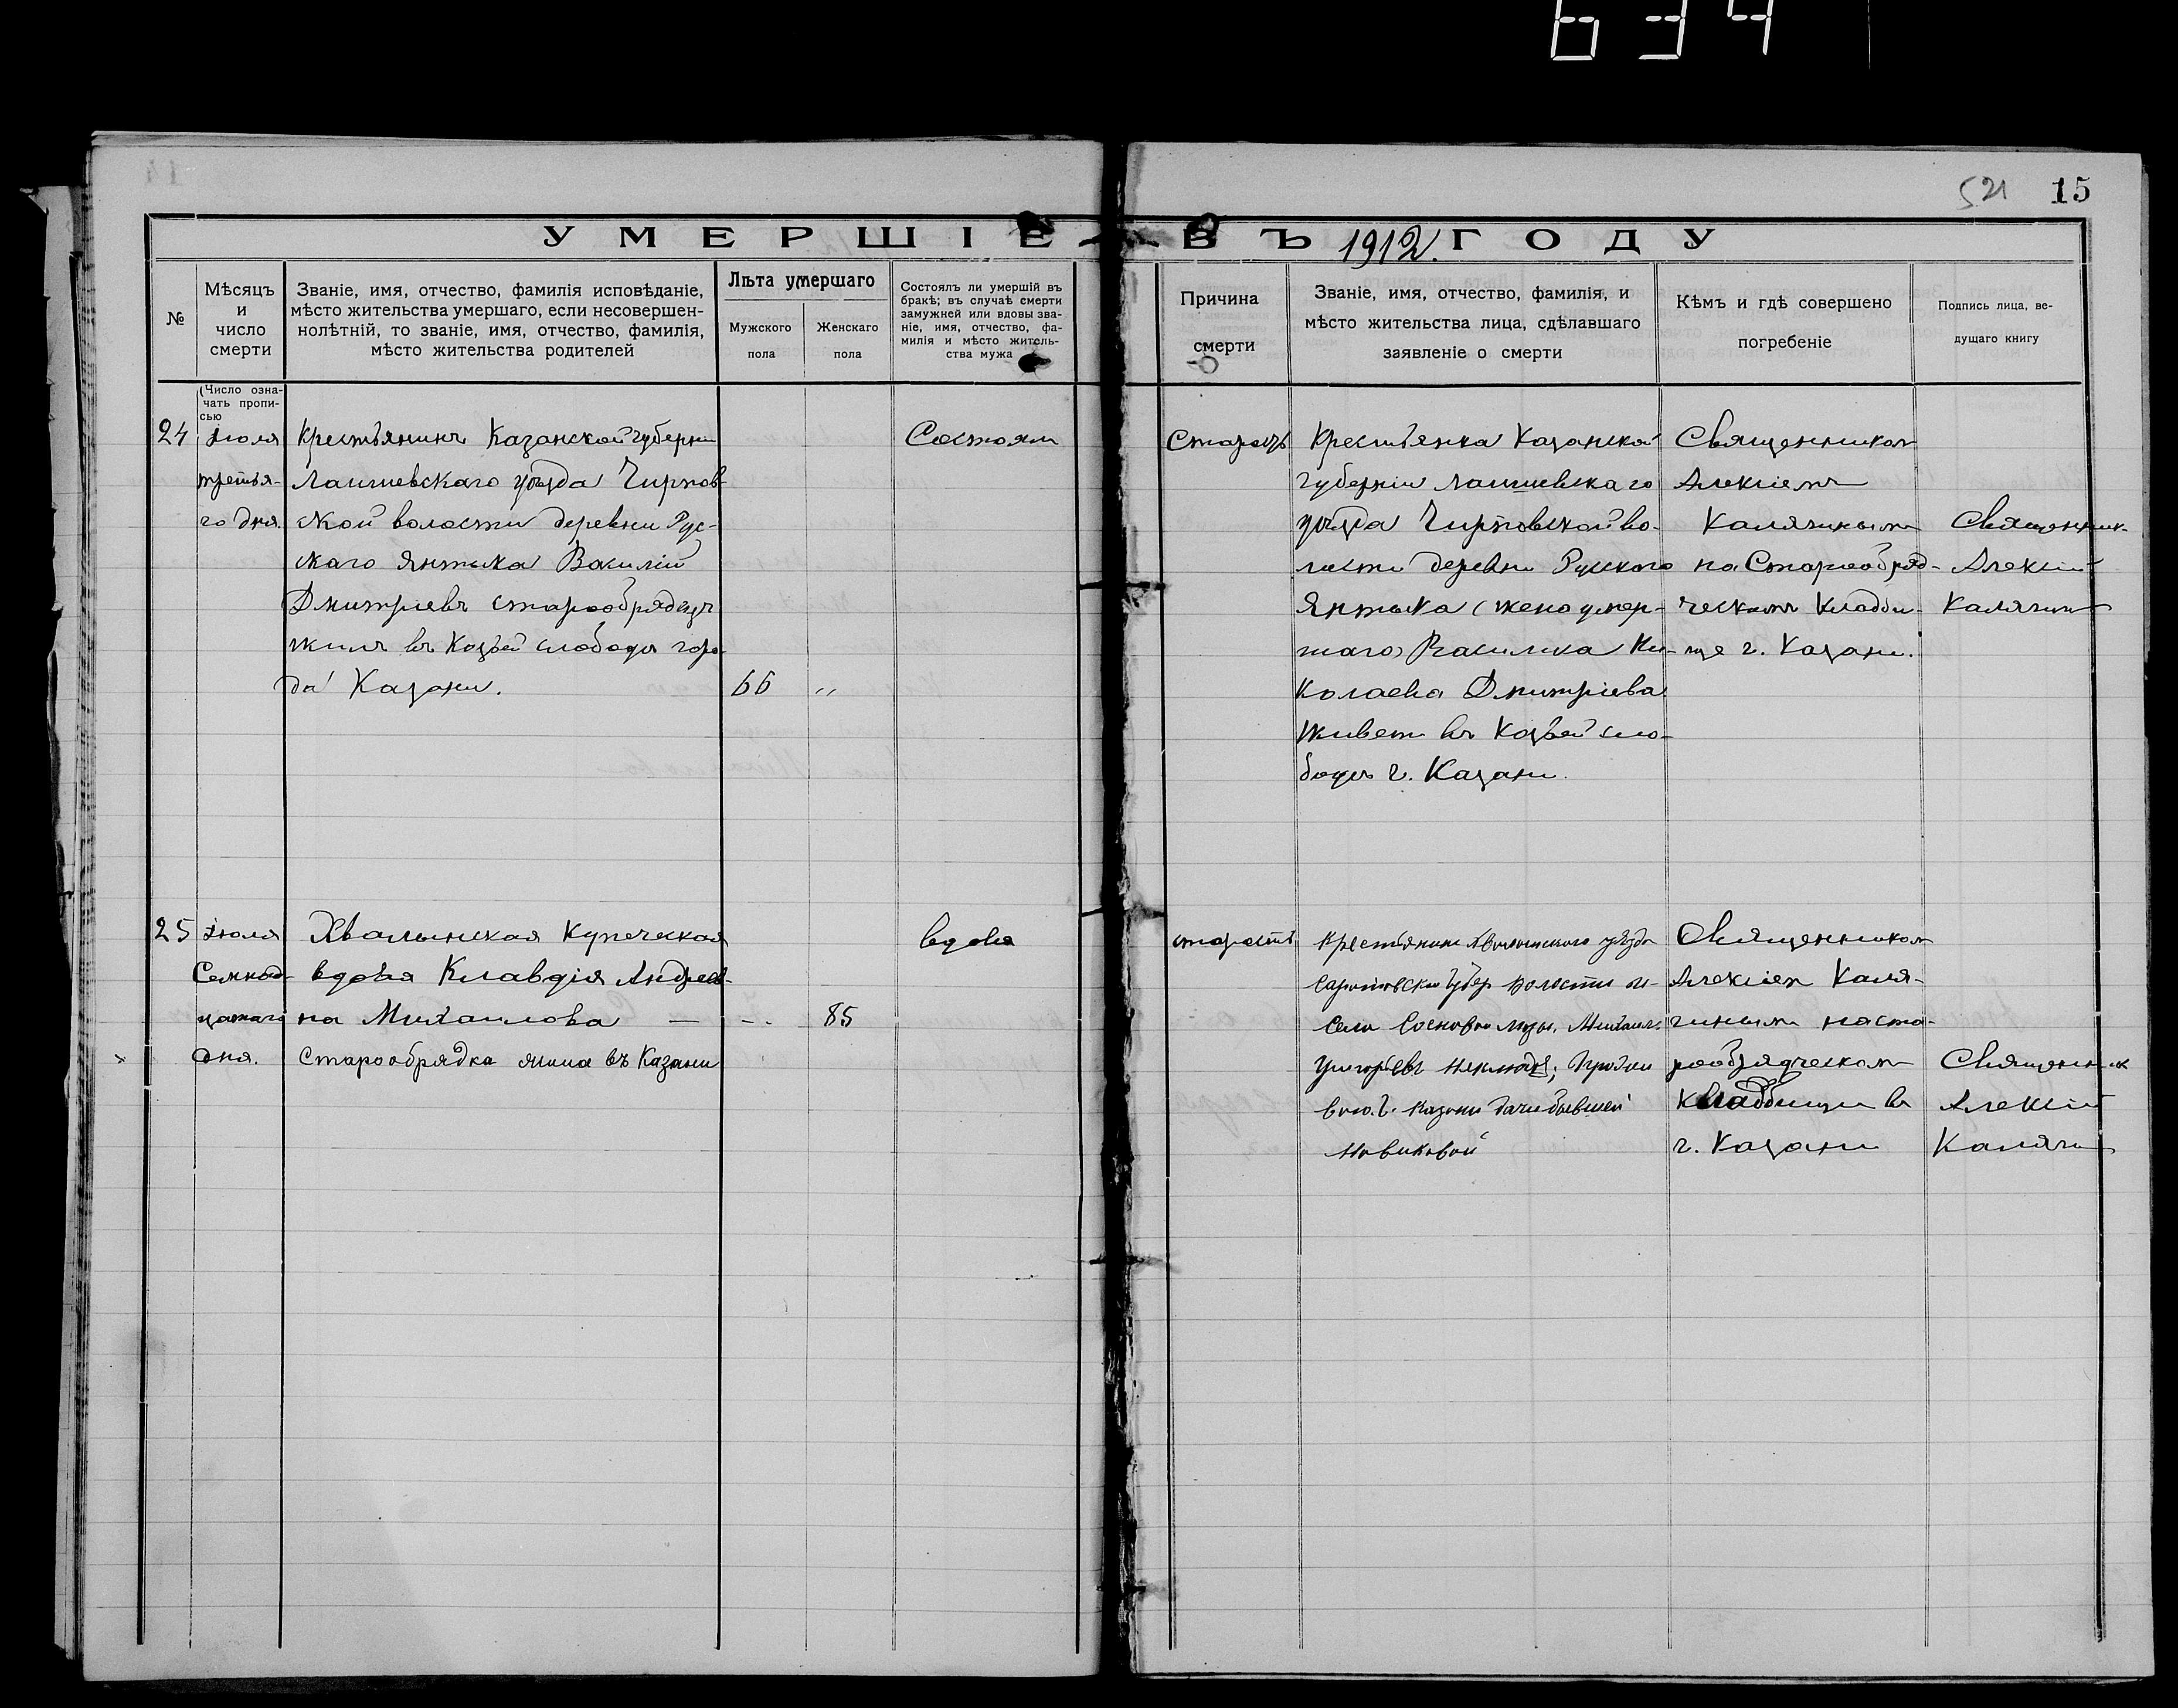 634
521 15
УМЕРШІЕ ВЪ 1912 ГОДУ
№
Мѣсяцъ
и
число
смерти
Званіе, имя, отчество, фамилія исповѣданіе,
мѣсто жительства умершаго, если несовершен-
нолѣтній, то званіе, имя, отчество, фамилія,
мѣсто жительства родителей
Лѣта умершаго
Мужского
пола
Женскаго
пола
Состоялъ ли умершій въ
бракѣ; въ случаѣ смерти
замужней или вдовы зва-
ніе, имя, отчество, фа-
милія и мѣсто житель-
ства мужа
Причина
смерти
Званіе, имя, отчество, фамилія, и
мѣсто жительства лица, сдѣлавшаго
заявленіе о смерти
Кѣмъ и гдѣ совершено
погребеніе
Подпись лица, ве-
дущаго книгу
(Число озна-
чать пропи-
сью
24
Іюля
третья-
го дня.
Крестьянинъ Казанской губерни
Лаишевскаго уѣзда Чирпов-
ской волости деревни Рус-
скаго Янтыка Василій
Дмитріевъ старообрядецъ
жилъ въ Козьей слободѣ горо-
да Казани.
66
"
Состоял
Старость
Крестьянка Казанской
губерніи Лаишевскаго
уѣзда Чирповской во-
лости деревни Русскаго
Янтыка (жена умер-
шаго) Василиса Ни-
колаева Дмитріева
живет въ Козьей сло-
бодѣ г. Казани.
Священником
Алексіемъ
Калягиным
на Старообряд-
ческомъ кладби-
ще г. Казани.
Священник
Алексій
Калягин
25
Іюля
Семнад-
цатаго
дня.
Хвалынская Купеческая
вдова Клавдія Андреев-
на Михаилова —
Старообрядка жила въ Казани
85
вдова
старость
Крестьянин Хвалынского уѣзда
Саратовской губер волости и
села Сосновой мазы, Михаил
Григорьевъ
г. Казани дачи бывшей
Новиковой
Священником
Алексіем Каля-
гиным на ста-
рообрядческом
кладбищи въ
г. Казани
Священник
Алексій
Калягин